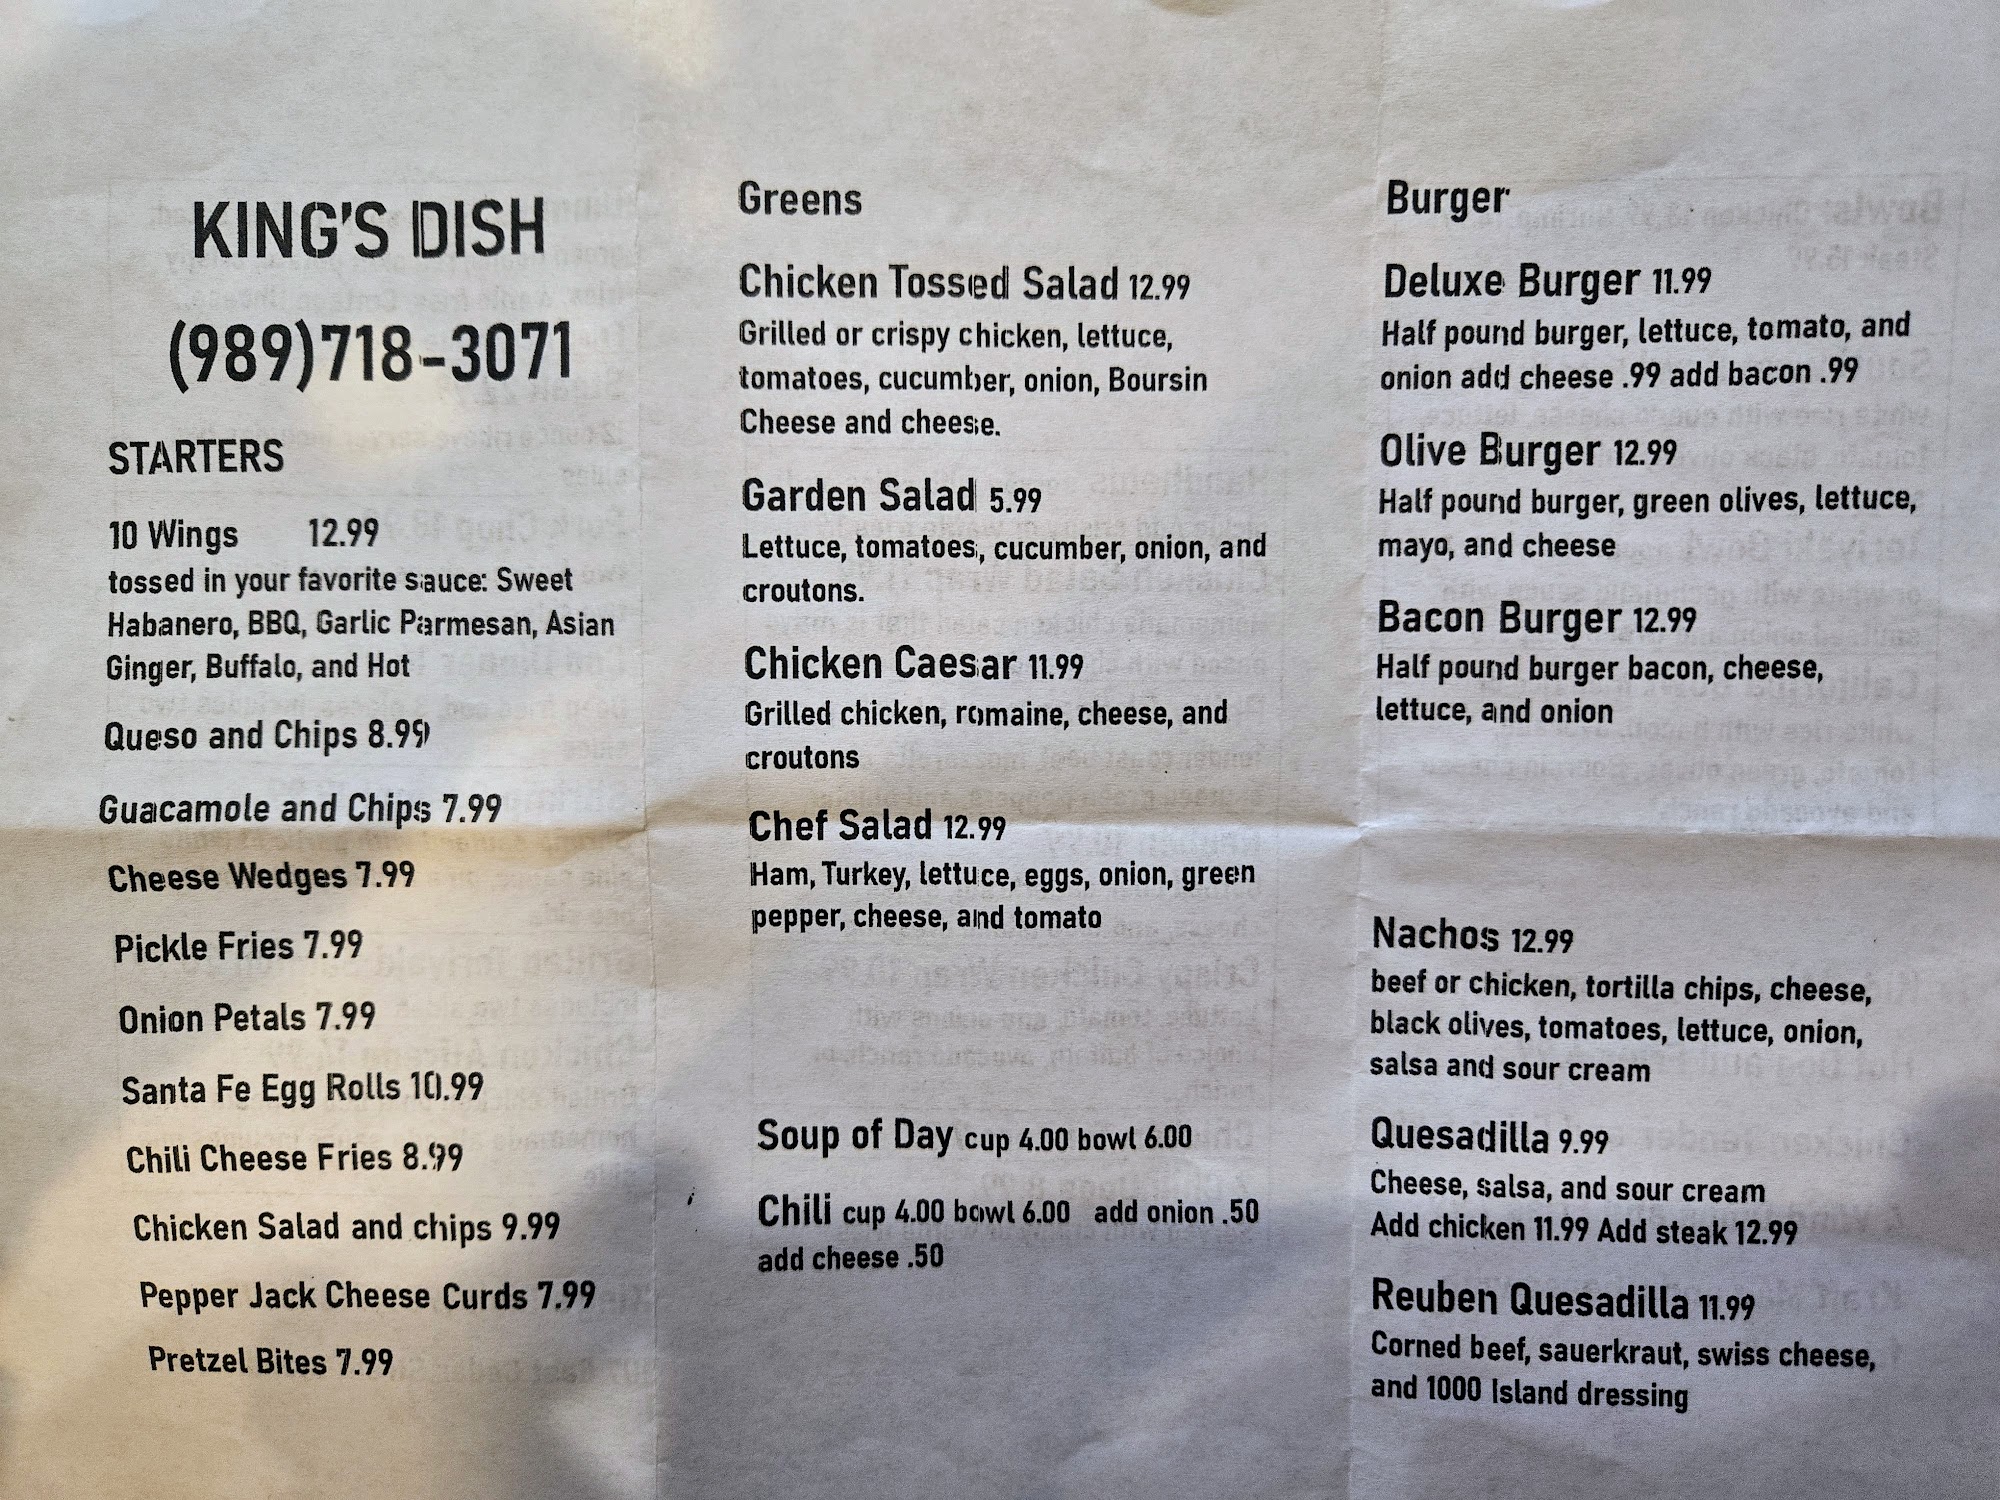 KING'S DISH
(989)718-3071
STARTERS
10 Wings 12.99
tossed in your favorite sauce: Sweet
Habanero, BBQ, Garlic Parmesan, Asian
Ginger, Buffalo, and Hot
Queso and Chips 8.99
Guacamole and Chips 7.99
Cheese Wedges 7.99
Pickle Fries 7.99
Onion Petals 7.99
Santa Fe Egg Rolls 10.99
Chili Cheese Fries 8.99
Chicken Salad and chips 9.99
Pepper Jack Cheese Curds 7.99
Pretzel Bites 7.99
Greens
Chicken Tossed Salad 12.99
Grilled or crispy chicken, lettuce,
tomatoes, cucumber, onion, Boursin
Cheese and cheese.
Garden Salad 5.99
Lettuce, tomatoes, cucumber, onion, and
croutons.
Chicken Caesar 11.99
Grilled chicken, romaine, cheese, and
croutons
Chef Salad 12.99
Ham, Turkey, lettuce, eggs, onion, green
pepper, cheese, and tomato
Soup of Day cup 4.00 bowl 6.00
Chili cup 4.00 bowl 6.00 add onion .50
add cheese .50
Burger
Deluxe Burger 11.99
Half pound burger, lettuce, tomato, and
onion add cheese .99 add bacon .99
Olive Burger 12.99
Half pound burger, green olives, lettuce,
mayo, and cheese
Bacon Burger 12.99
Half pound burger bacon, cheese,
lettuce, and onion
Nachos 12.99
beef or chicken, tortilla chips, cheese,
black olives, tomatoes, lettuce, onion,
salsa and sour cream
Quesadilla 9.99
Cheese, salsa, and sour cream
Add chicken 11.99 Add steak 12.99
Reuben Quesadilla 11.99
Corned beef, sauerkraut, swiss cheese,
and 1000 Island dressing